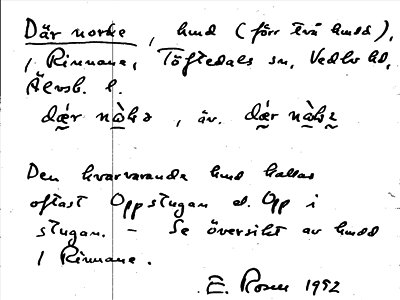 Där norke, hmd (förr två hmdd),
i Rinnane, Töftedals sn, Vedbo hd,
Älvsb. l.
dǽr nɔ̀kə, äv. dǽr nàkə
Den kvarvarande hmd kallas
oftast Oppstugan el. Opp i
stugan. – Se översikt av hmdd
i Rinnane.
E. Rosen 1952